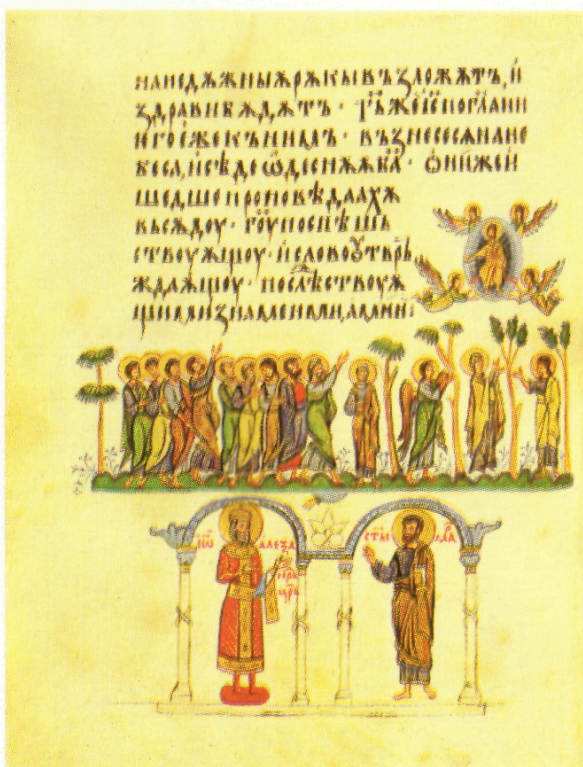 нанедѫжныѫрѫкывъꙁложѫтъ,и
ꙁдравибѫдѫтъ · г҃ьжеі҃спогл҃ани
иегоежекънимъ · въꙁнесесѧнане
беса,исѣдеѡдеснѫѫб҃а · ѡнижей
шедшепроповѣдаахѫ
въсѫдоу · г҃оупоспѣшь
ствоуѫщоу · исловоѹтврь
ждаѫщоу · послѣствоуѫ
щимиꙁнаменми,аминь:
іѡ҃ алеѯа
црь
ст҃ыи